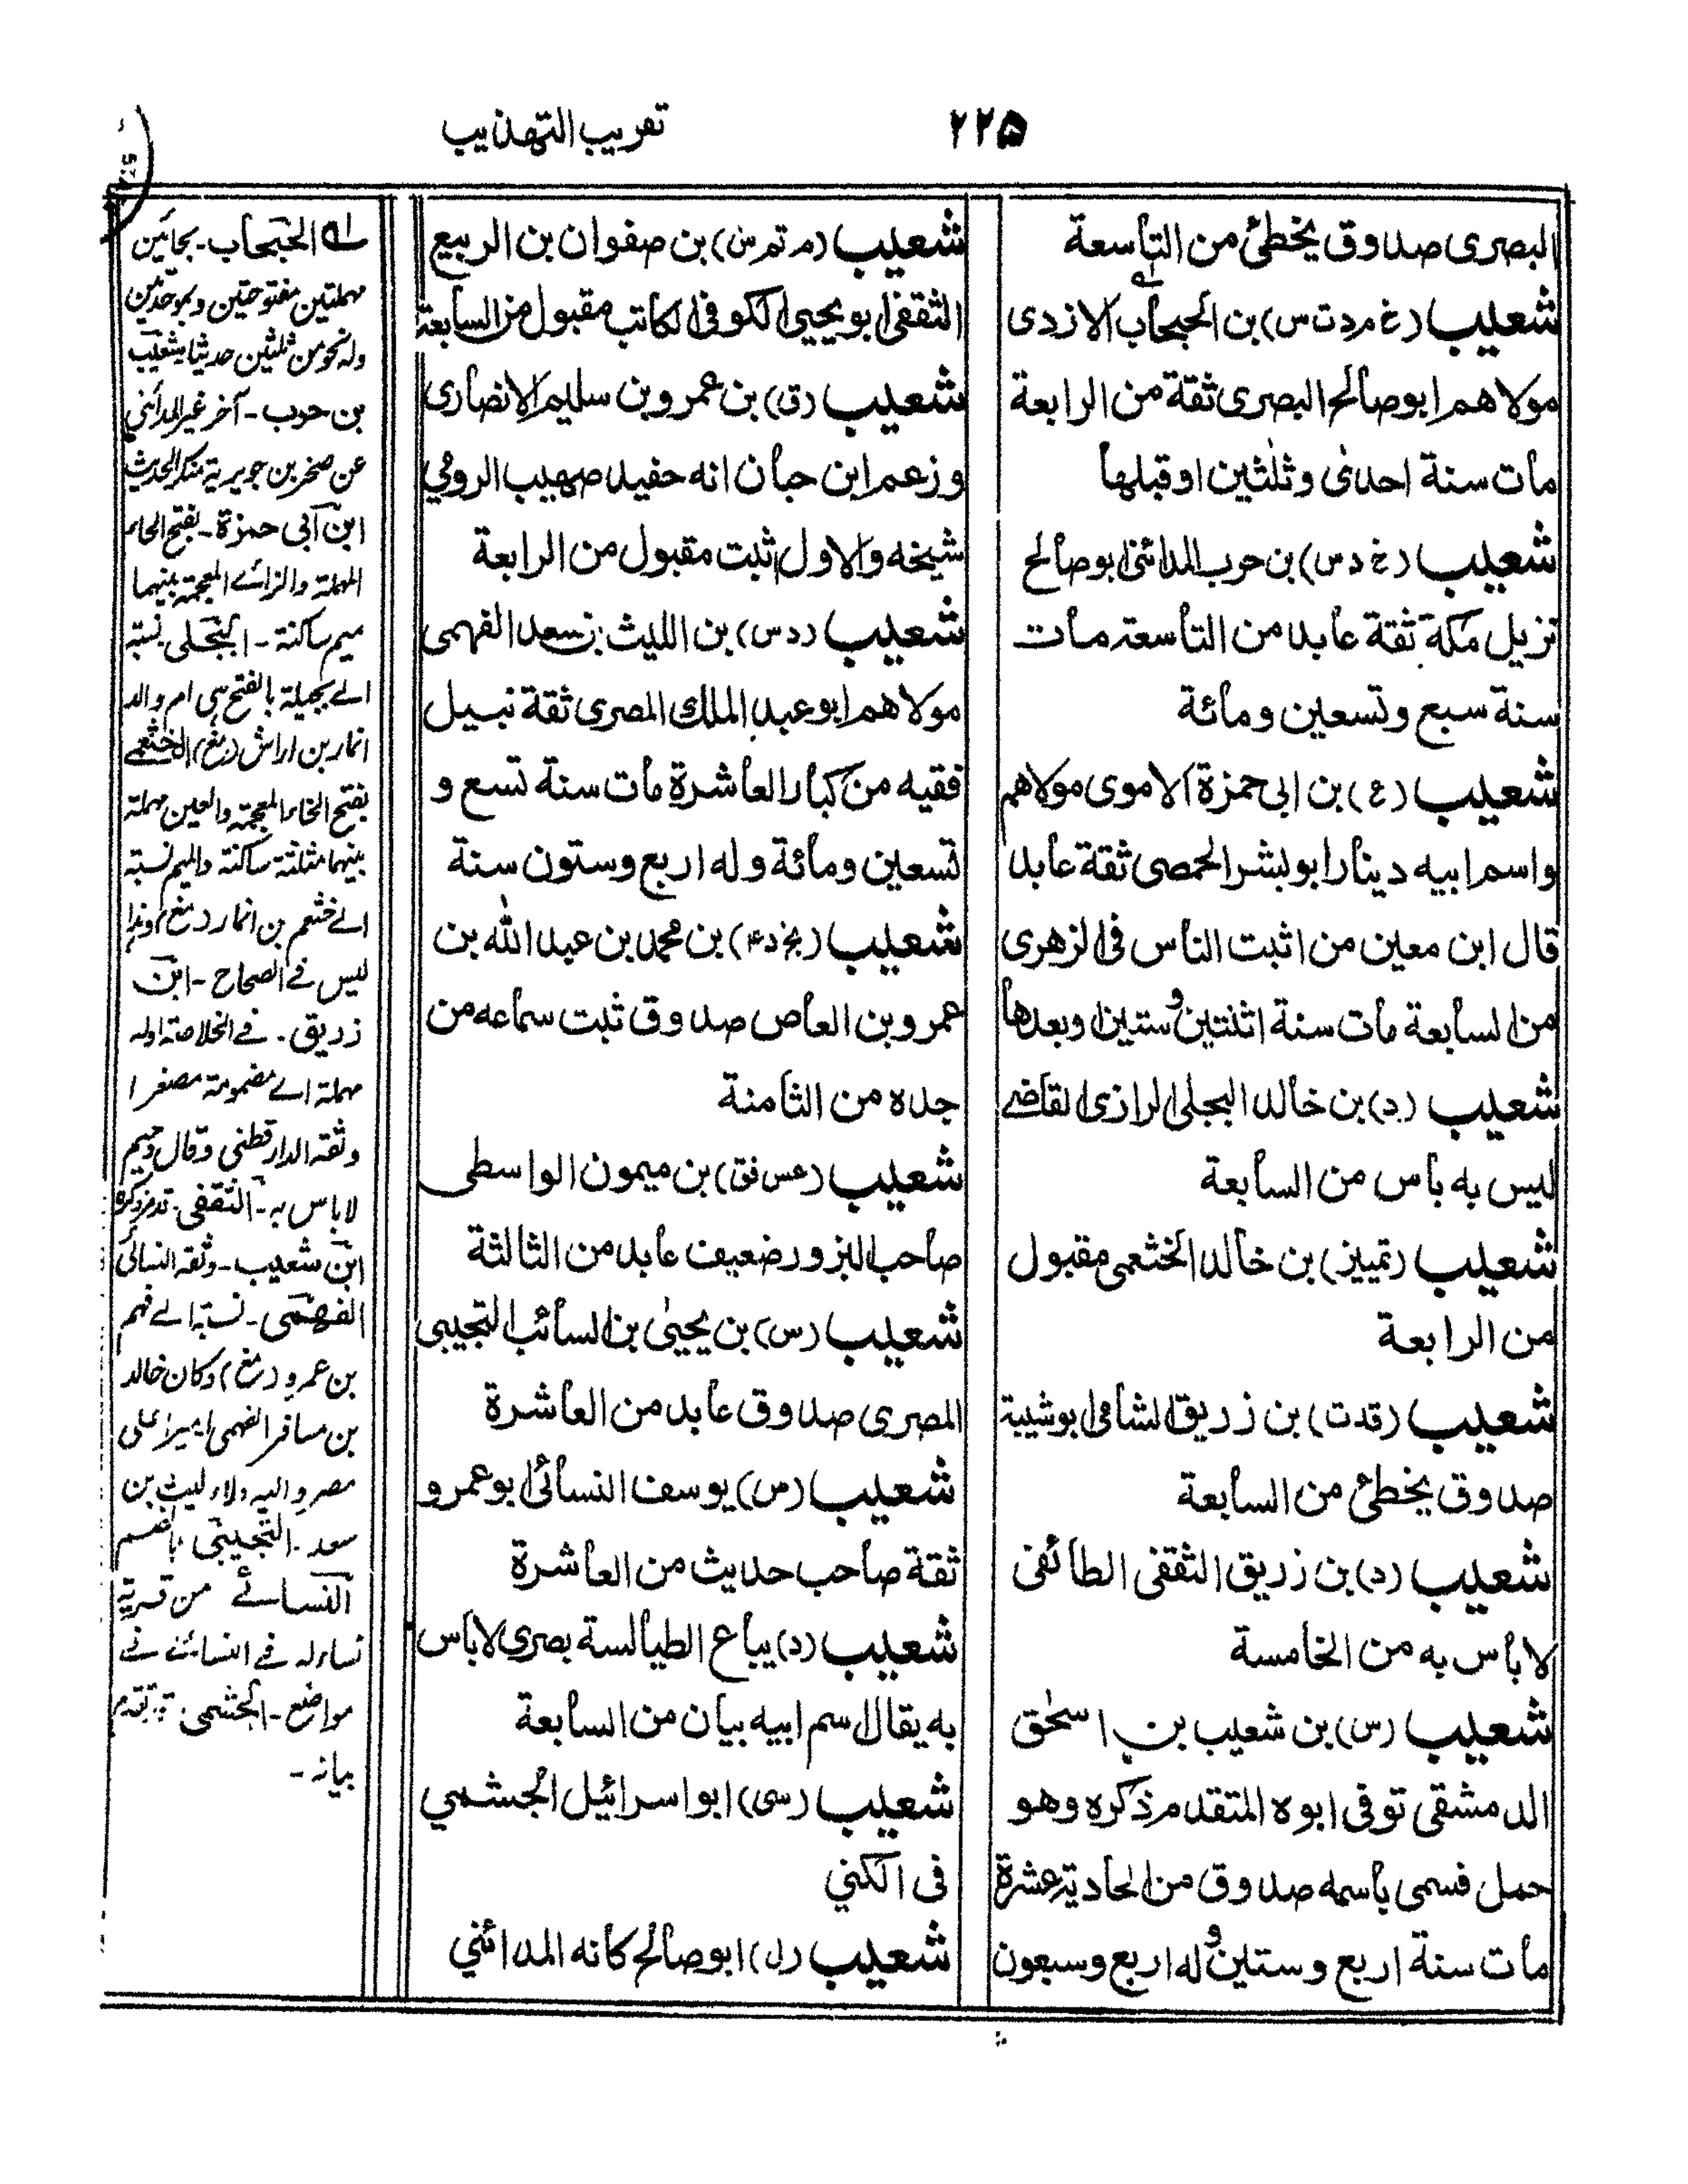 تقریب التهذیب
۲۲۵
البصری صدوق یخطئ من التاسعة
شعیب (خ م د ت س) بن الحبحاب الازدی
مولاهم ابو صالح البصری ثقة من الرابعة
مات سنة احدیٰ وثلٰثین او قبلها
شعیب (خ د س) بن حرب المدائنی ابو صالح
نزیل مکة ثقة عابد من التاسعة مات
سنة سبع وتسعین ومائة
شعیب (ع) بن ابی حمزة الاموی مولاهم
واسم ابیه دینار ابو بشر الحمصی ثقة عابد
قال ابن معین من اثبت الناس فی الزهری
من السابعة مات سنة اثنتین وستین او بعدها
شعیب (د) بن خالد البجلی الرازی القاضے
لیس به باس من السابعة
شعیب (تمییز) بن خالد الخثعمی مقبول
من الرابعة
شعیب (قدت) بن زریق الشامی ابو شیبة
صدوق یخطئ من السابعة
شعیب (د) بن زریق الثقفی الطائفی
لا باس به من الخامسة
شعیب (س) بن شعیب بن اسحٰق
الدمشقی توفی ابوه المتقدم ذکره وهو
حمل فسمی باسمه صدوق من الحادیة عشرة
مات سنة اربع وستین وله اربع وسبعون
شعیب (م تم س) بن صفوان بن الربیع
الثقفی ابو یحیی الکوفی الکاتب مقبول من السابعة
شعیب (ق) بن عمرو بن سلیم الانصاری
وزعم ابن حبان انه حفید صهیب الرومی
شیخه والاول اثبت مقبول من الرابعة
شعیب (د س) بن اللیث بن سعد الفهمی
مولاهم ابو عبد الملك المصری ثقة نبیل
فقیه من کبار العاشرة مات سنة تسع و
تسعین ومائة وله اربع وستون سنة
شعیب (بخ د ۴) بن محمد بن عبد الله بن
عمرو بن العاص صدوق ثبت سماعه من
جده من الثامنة
شعیب (عس فق) بن میمون الواسطی
صاحب البزور ضعیف عابد من الثالثة
شعیب (س) بن یحییٰ بن السائب التجیبی
المصری صدوق عابد من العاشرة
شعیب (س) یوسف النسائی ابو عمرو
ثقة صاحب حدیث من العاشرة
شعیب (د) بیاع الطیالسة بصری لا باس
به یقال اسم ابیه بیان من السابعة
شعیب (سی) ابو اسرائیل الجشمی
فی الکنی
شعیب (ل) ابو صالح کانه المدائنی
له الحبحاب - بحائین
مهملتین مفتوحتین وبموحدتین
وله نحو من ثلثین حدیثا شعیب
بن حرب - آخر غیر المدائنی
عن صخر بن جویریة منکر الحدیث
ابن ابی حمزة - بفتح الحاء
المهملة والزائے المعجمة بینهما
میم ساکنة - البجلی نسبة
الے بجیلة بالفتح هی ام والد
انمار بن اراش (مغ) الخثعمے
بفتح الخاء المعجمة والعین مهملة
بینهما مثلثة ساکنة والمیم نسبة
الے خثعم بن انمار (مغ) وهذا
لیس فے الصحاح - ابن
زریق - فے الخلاصة اوله
مهملة اے مضمومة مصغرا
وثقه الدارقطنی وقال دحیم
لا باس به - الثقفی - تقدم ذکره
ابن شعیب - وثقه النسائی
الفهمی - نسبة الے فهم
بن عمرو (مغ) وکان خالد
بن مسافر الفهمی امیرا علی
مصر والیه ولاء لیث بن
سعد - التجیبی بالضم
النسائے من قریة
نساء له فے النسائے فے
مواضع - الجشمی - تقدم
بیانه -